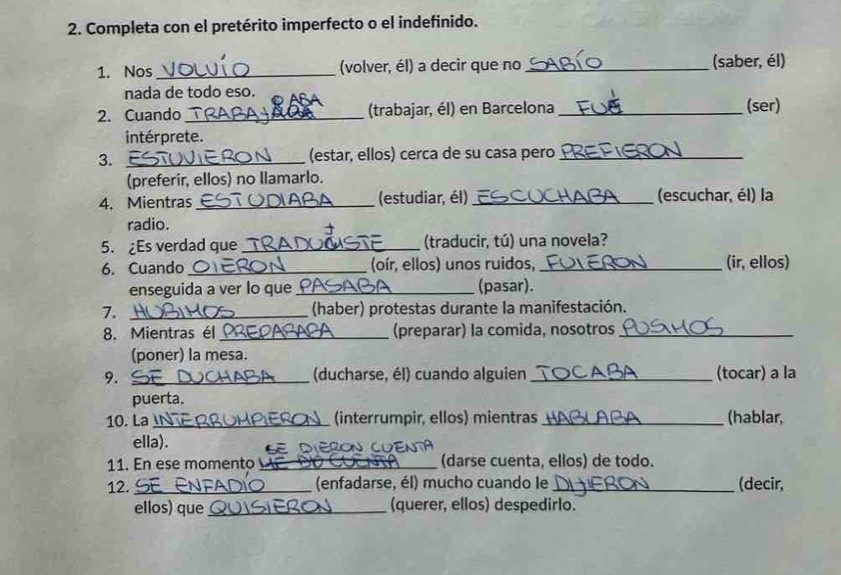 2. Completa con el pretérito imperfecto o el indefinido.
1. Nos VOLVÍO (volver, él) a decir que no SABÍO (saber, él)
nada de todo eso.
2. Cuando TRABAJABA (trabajar, él) en Barcelona FUÉ (ser)
intérprete.
3. ESTUVIERON (estar, ellos) cerca de su casa pero PREFIERON
(preferir, ellos) no llamarlo.
4. Mientras ESTUDIABA (estudiar, él) ESCUCHABA (escuchar, él) la
radio.
5. ¿Es verdad que TRADUJISTE (traducir, tú) una novela?
6. Cuando OIERON (oír, ellos) unos ruidos, FUIERON (ir, ellos)
enseguida a ver lo que PASABA (pasar).
7. HUBIMOS (haber) protestas durante la manifestación.
8. Mientras él PREPARABA (preparar) la comida, nosotros PUSIMOS
(poner) la mesa.
9. SE DUCHABA (ducharse, él) cuando alguien TOCABA (tocar) a la
puerta.
10. La INTERRUMPIERON (interrumpir, ellos) mientras HABLABA (hablar,
ella).
SE DIERON CUENTA
11. En ese momento (darse cuenta, ellos) de todo.
12. SE ENFADÍO (enfadarse, él) mucho cuando le DIJIERON (decir,
ellos) que QUISIERON (querer, ellos) despedirlo.